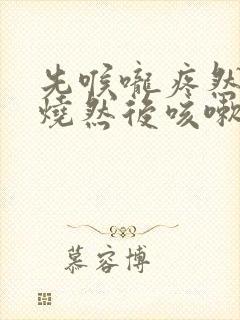 先喉嚨疼然
燒然後咳嗽
慕容博